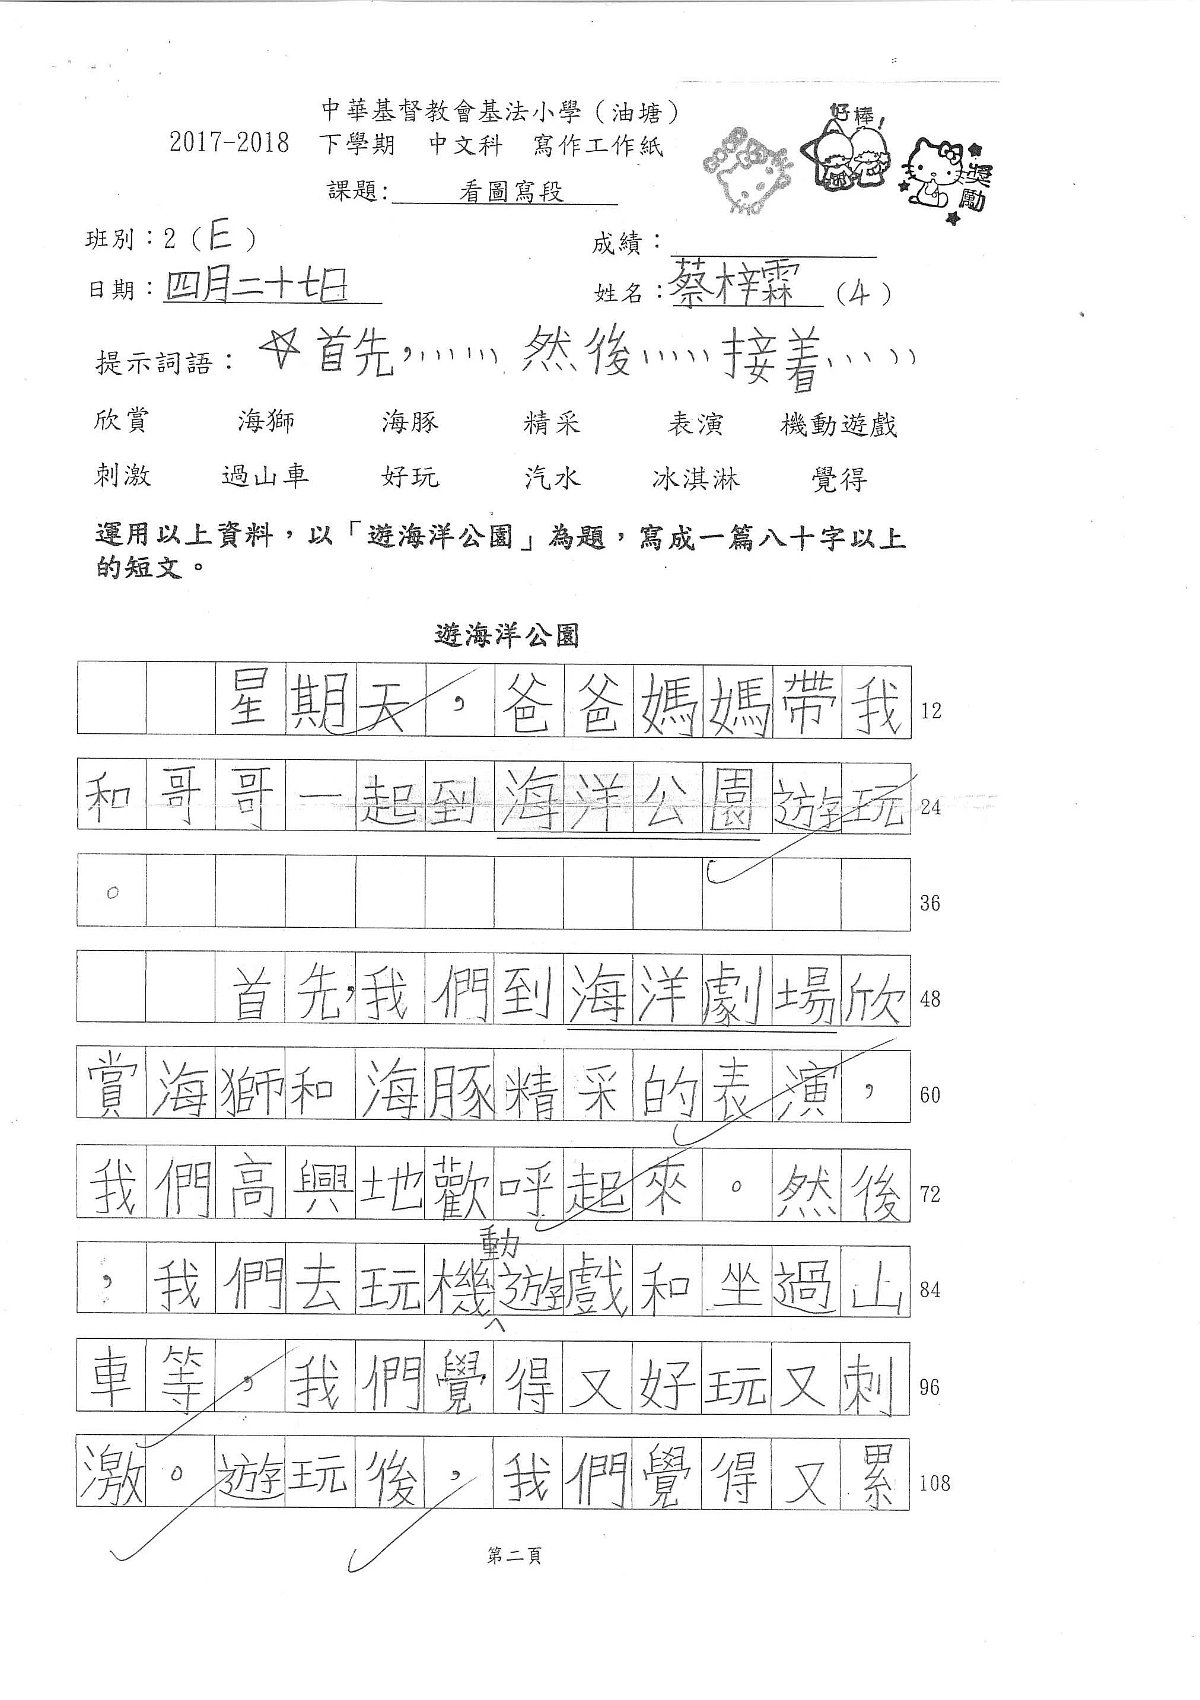 中華基督教會基法小學（油塘）
2017-2018 下學期 中文科 寫作工作紙
好棒！
獎勵
課題：看圖寫段
班別：2（E）
成績：
日期：四月二十七日
姓名：蔡梓霖（4）
提示詞語：☆首先，……然後……接着……
欣賞 海獅 海豚 精采 表演 機動遊戲
刺激 過山車 好玩 汽水 冰淇淋 覺得
運用以上資料，以「遊海洋公園」為題，寫成一篇八十字以上
的短文。
遊海洋公園
星期天，爸爸媽媽帶我 12
和哥哥一起到海洋公園遊玩 24
。 36
首先，我們到海洋劇場欣 48
賞海獅和海豚精采的表演， 60
我們高興地歡呼起來。然後 72
，我們去玩機動遊戲和坐過山 84
車等，我們覺得又好玩又刺 96
激。遊玩後，我們覺得又累 108
第二頁